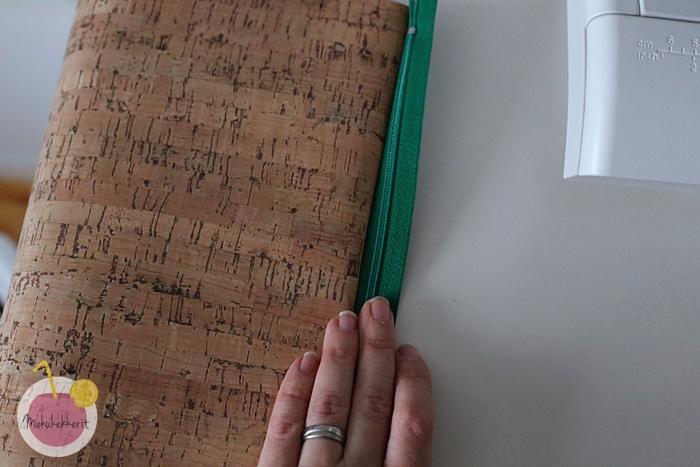 cm 6 5
inch 2
Mehukekkerit